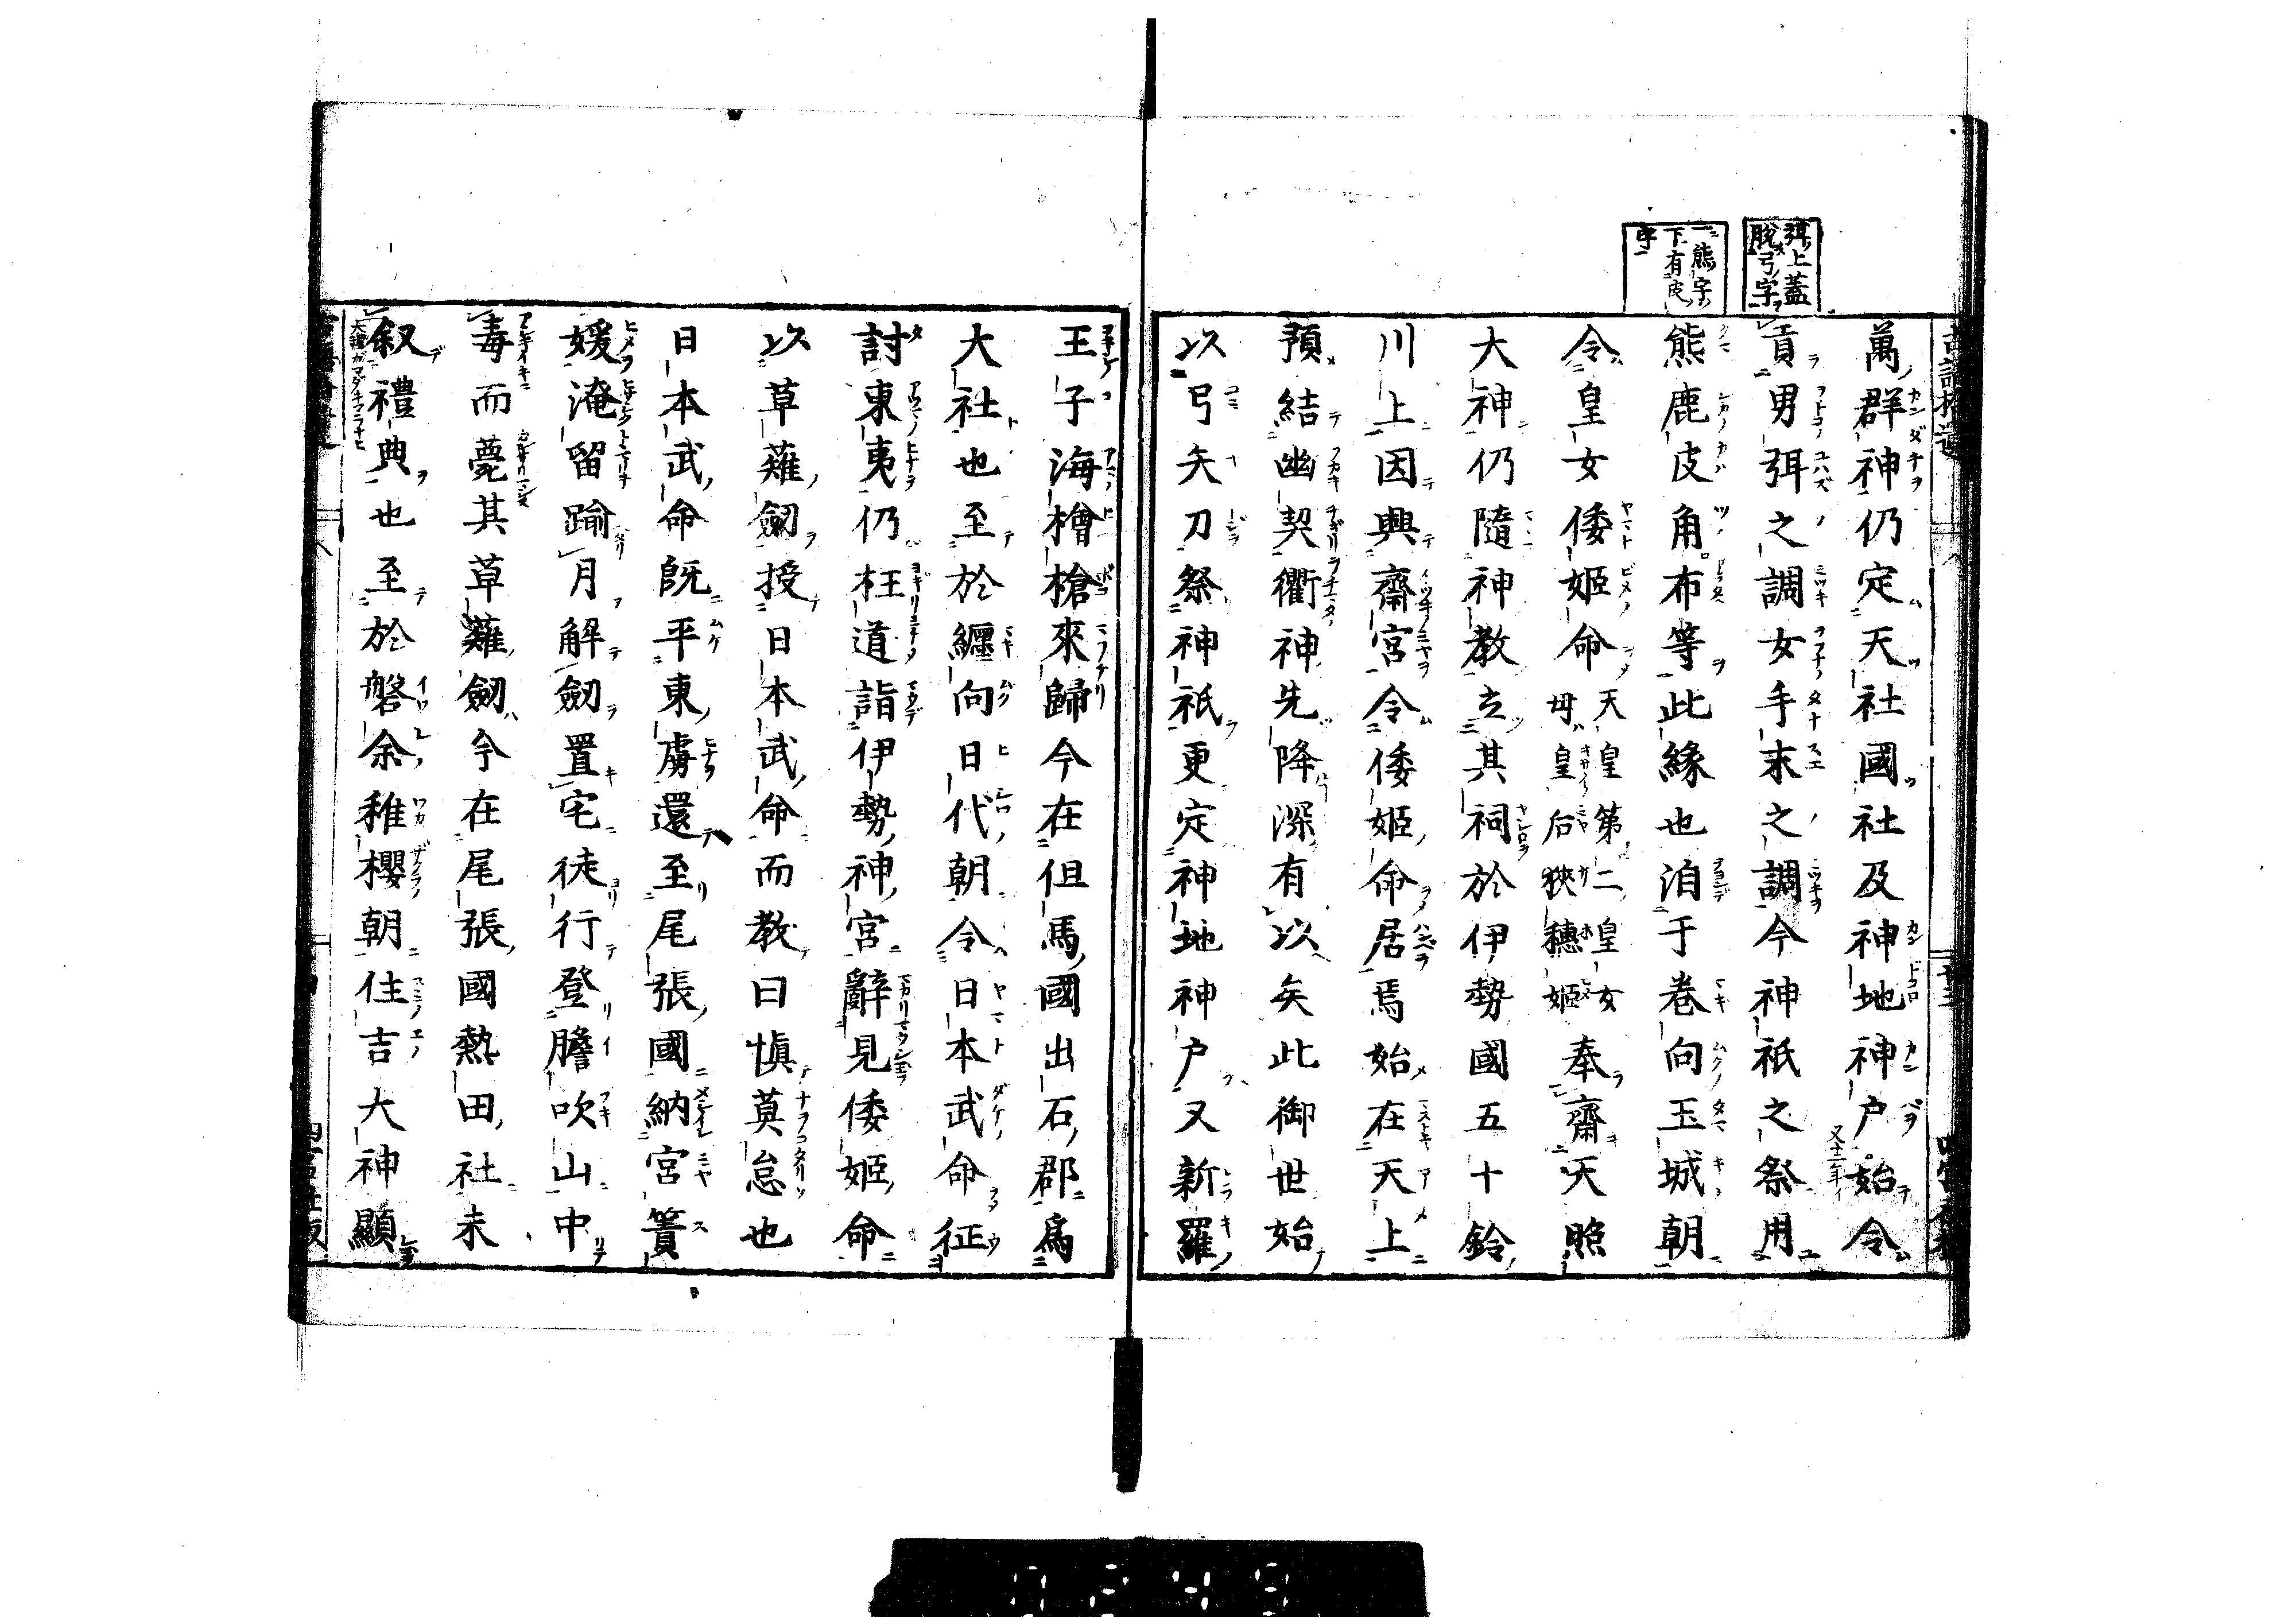 弭上蓋
脱弓字
一熊字
下有皮
字
萬群神仍定天社國社及神地神户始令
貢男弭之調女手末之調今神祇之祭用
熊鹿皮角布等此縁也洎于卷向玉城朝
令皇女倭姬命天皇第二皇女母皇后狹穗姬奉齋天照
大神仍隨神教立其祠於伊勢國五十鈴
川上因興齋宮令倭姬命居焉始在天上
預結幽契衢神先降深有以矣此御世始
以弓矢刀祭神祇更定神地神户又新羅
王子海檜槍來歸今在但馬國出石郡爲
大社也至於纏向日代朝令日本武命征
討東夷仍枉道詣伊勢神宮辭見倭姬命
以草薙劔授日本武命而教曰愼莫怠也
日本武命既平東虜還至尾張國納宮簀
媛淹留踰月解劔置宅徒行登膽吹山中
毒而薨其草薙劔今在尾張國熱田社未
叙禮典也至於磐余稚櫻朝住吉大神顯